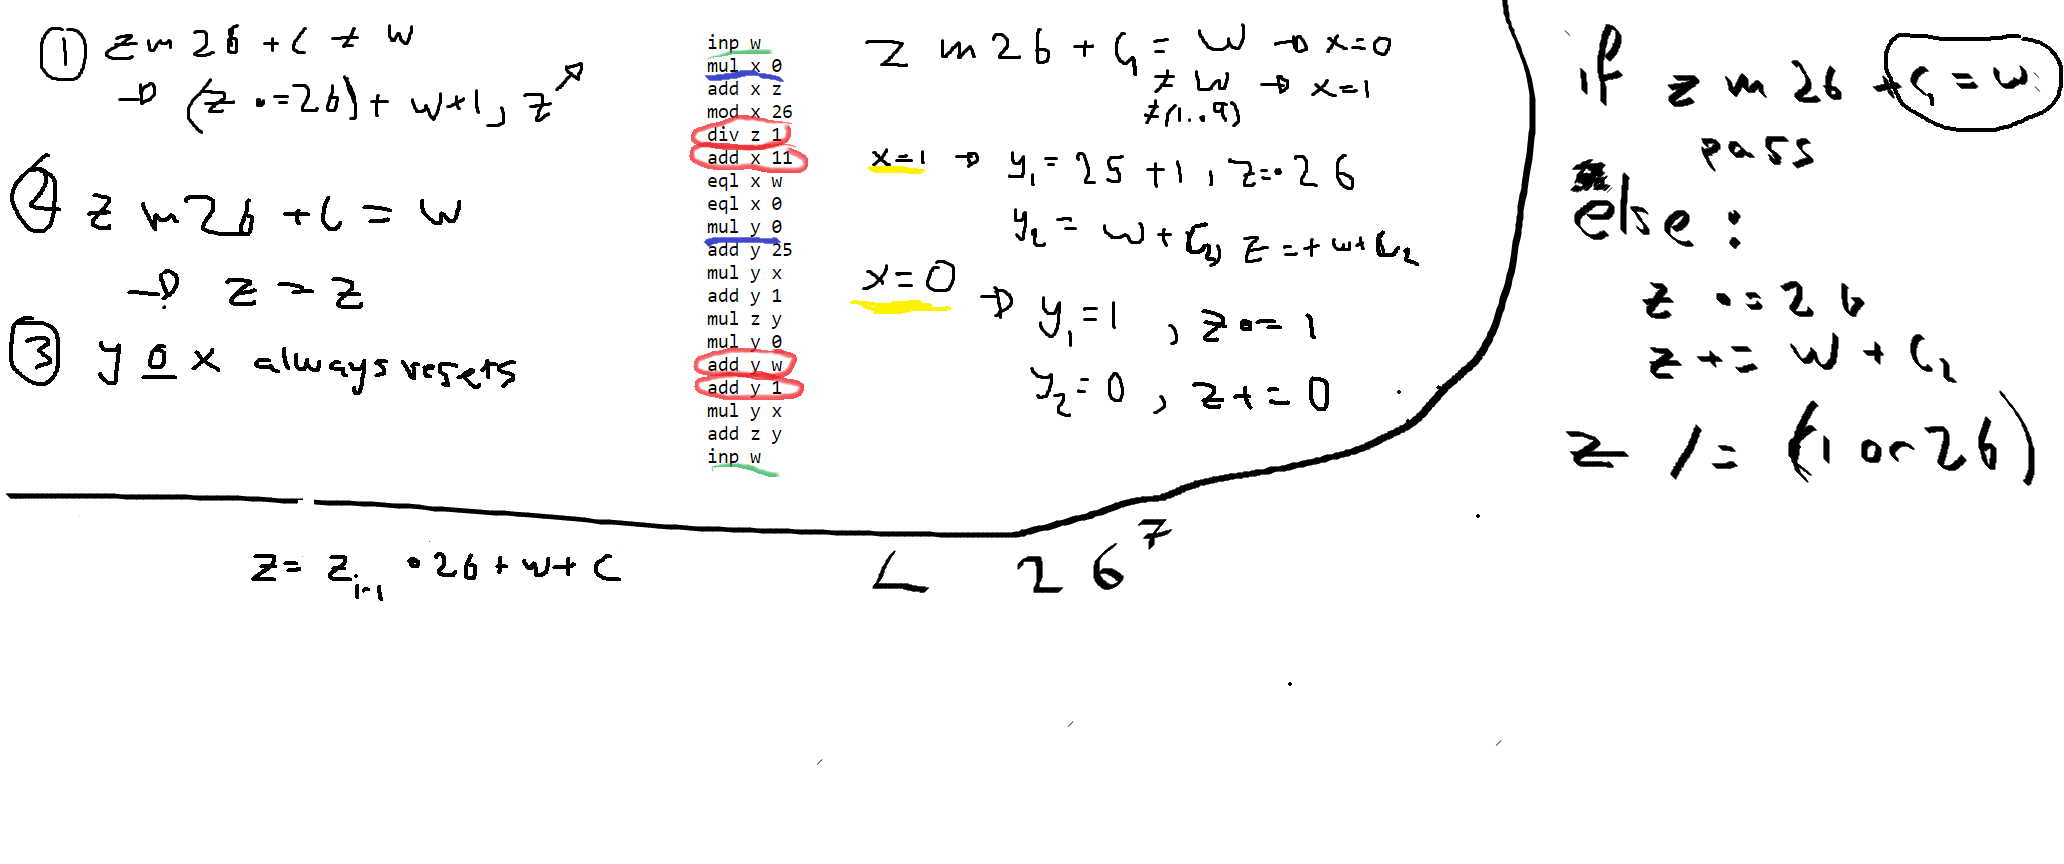 ① z m 26 + C ≠ w
→ (z •= 26) + w + 1, z ↗
② z m 26 + C = w
→ z = z
③ y o x always resets
inp w
mul x 0
add x z
mod x 26
div z 1
add x 11
eql x w
eql x 0
mul y 0
add y 25
mul y x
add y 1
mul z y
mul y 0
add y w
add y 1
mul y x
add z y
inp w
z m 26 + C₁ = w → x=0
≠ w → x=1
≠(1..9)
x=1 → y₁ = 25 + 1, z=•26
y₂ = w + C₂, z =+ w+C₂
x=0 → y₁=1, z•=1
y₂=0, z+=0
if z m 26 + C₁ = w:
pass
else:
z •= 26
z += w + C₂
z /= (1 or 26)
z= zᵢ₋₁ • 26 + w + C
∠ 26⁷